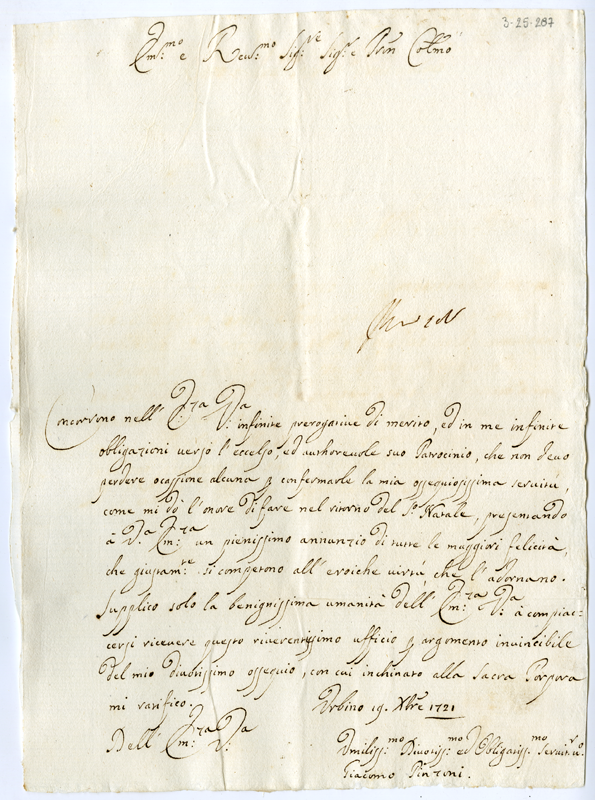 3-25-207
Em.mo e Rev.mo Sig.re Sig.re e Pron Col.mo
Concorrono nell' Em.za V.a infinite prerogative di merito, ed in me infinite
obligazioni verso l'eccelso, ed authorevole suo Patrocinio, che non devo
perdere occasione alcuna p confermarle la mia ossequiosissima servitù,
come mi dò l'onore di fare nel ritorno del S.o Natale, presentando
à V.a Em.za un pienissimo annunzio di tutte le maggiori felicità,
che giustam.te si competono all'eroiche virtù, che l'adornano.
Supplico solo la benignissima umanità dell' Em.za V.a à compiac=
cersi ricevere questo riverentissimo ufficio p argomento invincibile
del mio divotissimo ossequio, con cui inchinato alla Sacra Porpora
mi ratifico. Urbino 19. Xbre 1721
Dell' Em.za V.a
Umiliss.mo Divotiss.mo ed Obligatiss.mo Servit.re
Giacomo Pinzoni.